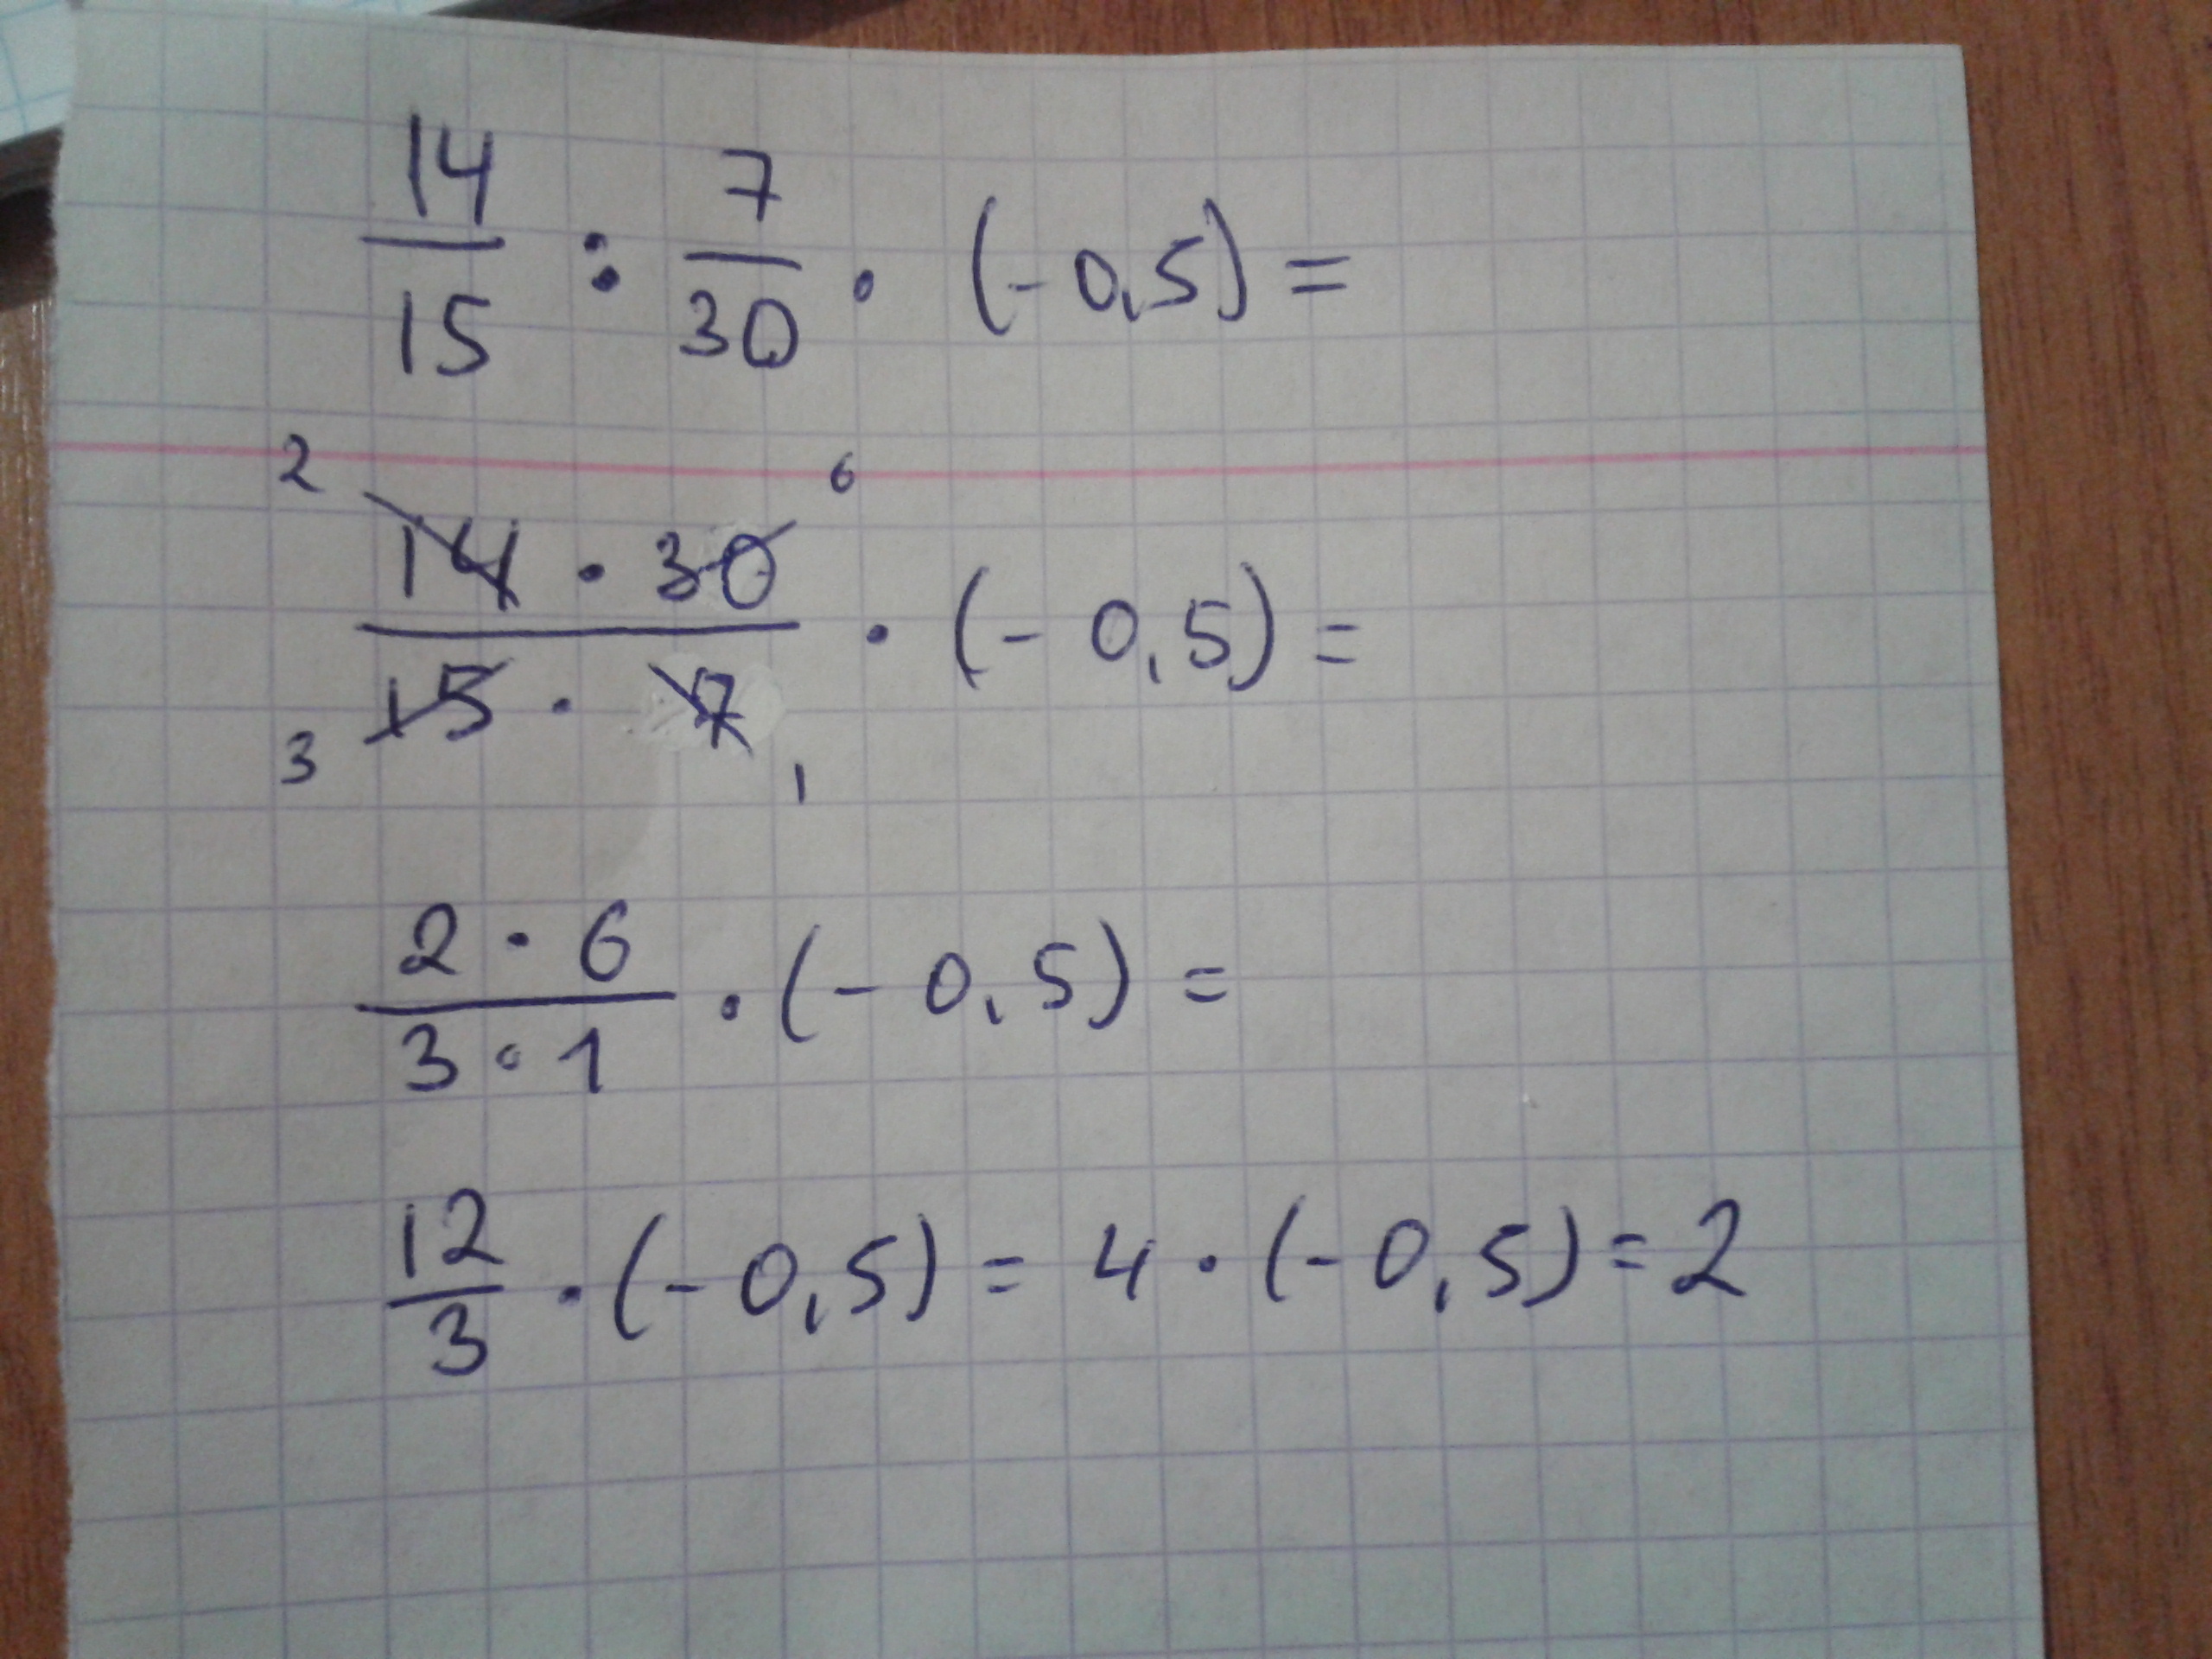 14/15 : 7/30 · (-0,5) =
2 6
14 · 30 / 15 · 7 · (- 0,5) =
3 1
2 · 6 / 3 · 1 · (- 0,5) =
12/3 · (- 0,5) = 4 · (- 0,5) = 2